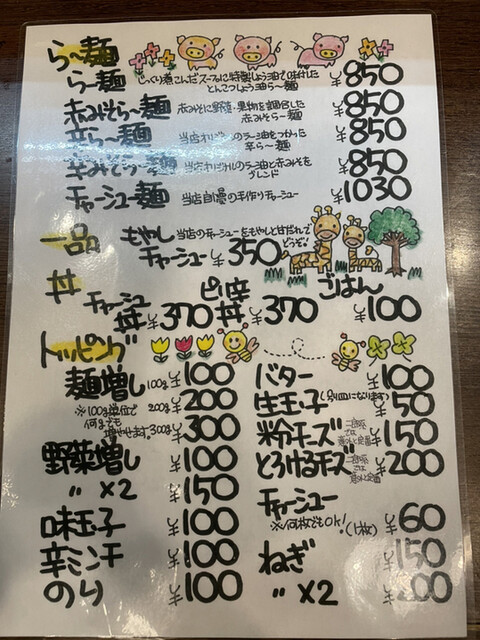 ら〜麺
らー麺 じっくり煮こんだスープに特製しょう油で味付したとんこつしょう油ら〜麺 ¥850
赤みそら〜麺 赤みそに野菜・果物を調合した赤みそらー麺 ¥850
辛ら〜麺 当店オリジナルのラー油をつかった辛ら〜麺 ¥850
辛みそら〜麺 当店オリジナルのラー油と赤みそをブレンド ¥850
チャーシュー麺 当店自慢の手作りチャーシュー ¥1030
一品
もやしチャーシュー 当店のチャーシューをもやしと甘だれでどうぞ ¥350
丼
チャーシュー丼 ¥370 ピリ辛丼 ¥370 ごはん ¥100
トッピング
麺増し 100g ¥100
200g ¥200
※100g単位で何gでも増やせます。 300g ¥300
野菜増し ¥100
〃 ×2 ¥150
味玉子 ¥100
辛ミンチ ¥100
のり ¥100
バター ¥100
生玉子 (別皿になります) ¥50
粉チーズ ¥150
とろけるチーズ ¥200
チャーシュー
※何枚でもOK! (1枚) ¥60
ねぎ ¥150
〃 ×2 ¥200